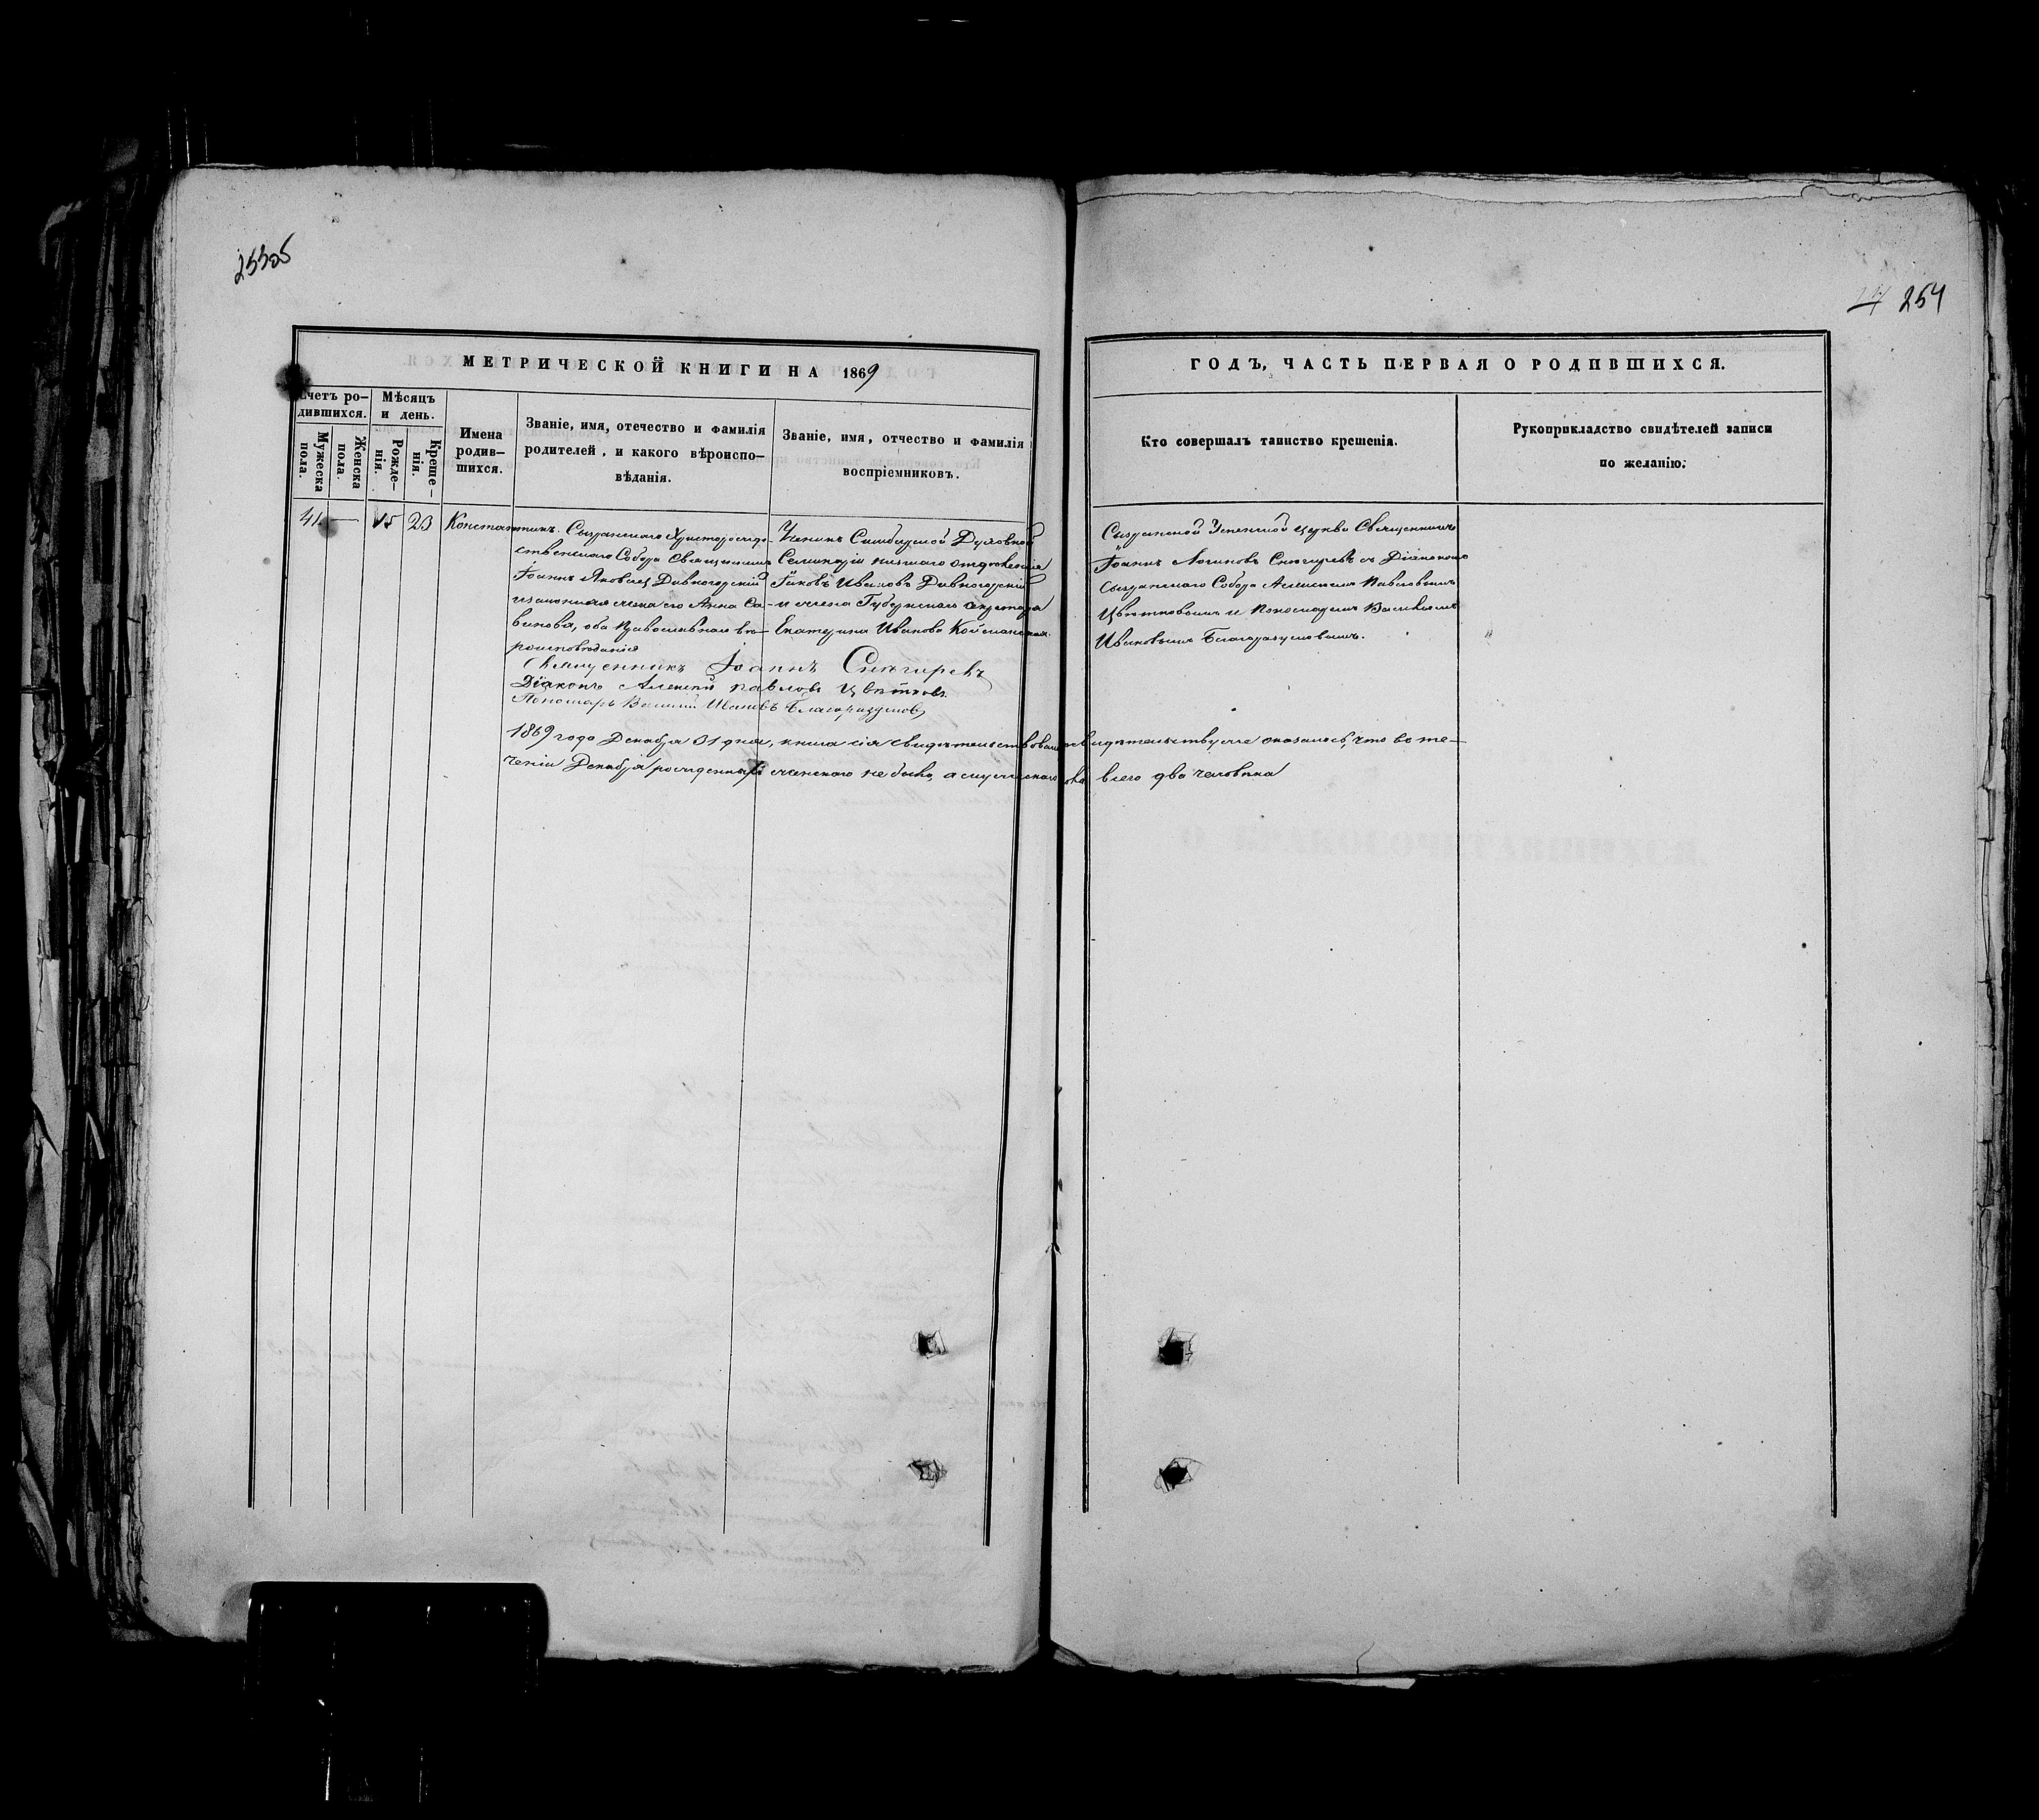 25505
24 254
МЕТРИЧЕСКОЙ КНИГИ НА 1869
ГОДЪ, ЧАСТЬ ПЕРВАЯ О РОДИВШИХСЯ.
Счетъ ро-
дившихся.
Мужеска
пола.
Женска
пола.
Мѣсяцъ
и день.
Рожде-
нія.
Креще-
нія.
Имена
родив-
шихся.
Званіе, имя, отечество и фамилія
родителей, и какого вѣроиспо-
вѣданія.
Званіе, имя, отчество и фамилія
воспріемниковъ.
Кто совершалъ таинство крещенія.
Рукоприкладство свидѣтелей записи
по желанію.
41. — 15 23 Константинъ.
Сызранскаго Христорожде-
ственскаго Собора Священникъ
Іоаннъ Яковлев Дивногорскій
и законная жена его Анна Са-
винова, оба Православнаго вѣ-
роисповѣданія
Ученикъ Симбирской Духовной
Семинаріи низшаго отдѣленія
Іаковъ Ивановъ Дивногорскій
и жена Губернскаго секретаря
Екатерина Иванова
Сызранской Успенской церкви Священникъ
Іоаннъ Логиновъ Снѣгиревъ съ Діакономъ
Сызранскаго Собора Алексѣемъ Павловымъ
Цвѣтковымъ и Пономаремъ Василіемъ
Ивановымъ Благоразумовымъ.
Священникъ Іоаннъ Снѣгиревъ
Діаконъ Алексѣй Павловъ Цвѣтковъ
Пономарь Василій Ивановъ Благоразумовъ
1869 года Декабря 31 дня, книга сія свидѣтельствована и по свидѣтельству оказалось, что въ те-
ченіи Декабря рожденныхъ женскаго не было, а мужескаго пола всего два человѣка